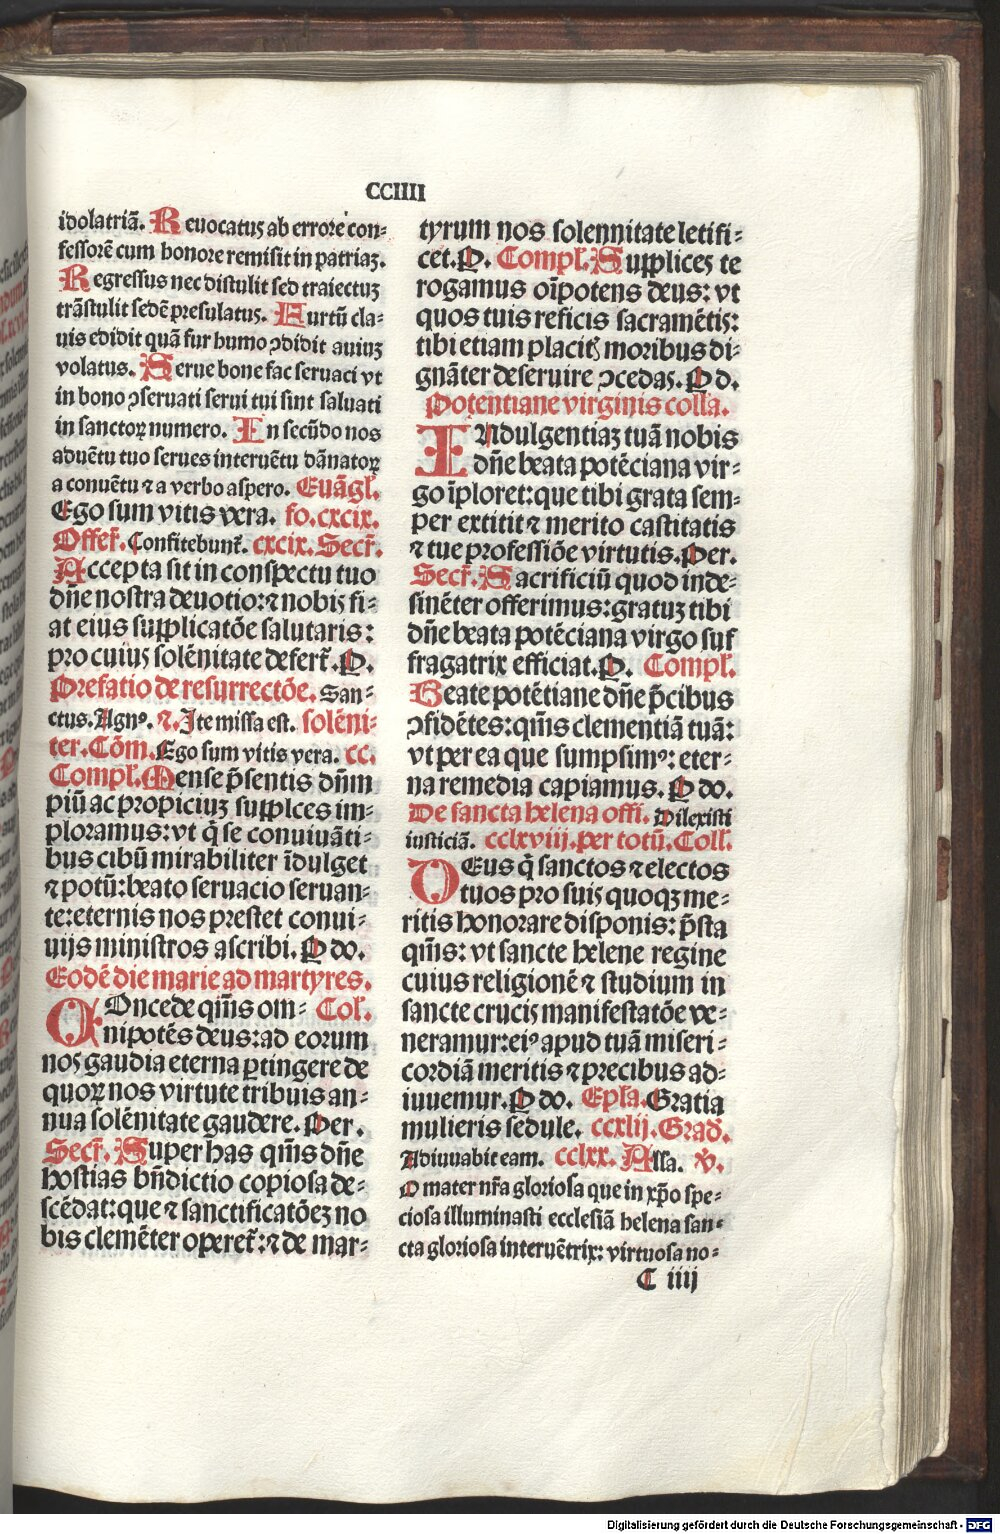 CCIIII
idolatriā. Reuocatuꝫ ab errore con-
fessorē cum honore remisit in patriaꝫ.
Regressus nec distulit sed traiectuꝫ
trāstulit sedē presulatuꝫ. Furtū cla-
uis edidit quā fur humo ꝯdidit auiuꝫ
volatus. Serue bone fac seruaci vt
in bono ꝯseruati serui tui sint saluati
in sanctoꝝ numero. In secūdo nos
aduētu tuo serues interuētu dānatoꝝ
a conuētu ⁊ a verbo aspero. Euāgl̄.
Ego sum vitis vera. fo. cxcix.
Offer̄. Confitebunt̄. cxcix. Secr̄.
Accepta sit in conspectu tuo
dn̄e nostra deuotio: ⁊ nobis fi-
at eius supplicatōe salutaris:
pro cuius solēnitate defert̄. P.
Prefatio de resurrectōe. San-
ctus. Agnꝰ. ⁊. Ite missa est. solēni-
ter. Cōm. Ego sum vitis vera. cc.
Compl̄. Mense p̄sentis dn̄m
piū ac propiciuꝫ supplces im-
ploramus: vt q̄ se conuiuāti-
bus cibū mirabiliter īdulget
⁊ potū: beato seruacio seruan-
te: eternis nos prestet conui-
uijs ministros ascribi. P do.
Eodē die marie ad martyres.
COncede qm̄s om- Col̄.
nipotēs deus: ad eorum
nos gaudia eterna ꝑtingere de
quoꝝ nos virtute tribuis an-
nua solēnitate gaudere. Per.
Secr̄. Super has qm̄s dn̄e
hostias bn̄dictio copiosa de-
scēdat: que ⁊ sanctificatōeꝫ no
bis clemēter operet̄: ⁊ de mar-
tyrum nos solennitate letifi-
cet. P. Compl̄. Supplices te
rogamus oīpotens deus: vt
quos tuis reficis sacramētis:
tibi etiam placitꝭ moribus di-
gnāter deseruire ꝯcedas. P d.
Potentiane virginis colla.
INdulgentiaꝫ tuā nobis
dn̄e beata potēciana vir-
go īploret: que tibi grata sem-
per extitit ⁊ merito castitatis
⁊ tue professiōe virtutis. Per.
Secr̄. Sacrificiū quod inde-
sinēter offerimus: gratuꝫ tibi
dn̄e beata potēciana virgo suf
fragatrix efficiat. P. Compl̄.
Beate potētiane dn̄e p̄cibus
ꝯfidētes: qm̄s clementiā tuā:
vt per ea que sumpsimꝰ: eter-
na remedia capiamus. P do.
De sancta helena offi. Dilexisti
iusticiā. cclxviij. per totū. Coll̄.
DEus q̄ sanctos ⁊ electos
tuos pro suis quoqꝫ me-
ritis honorare disponis: p̄sta
qm̄s: vt sancte helene regine
cuius religionē ⁊ studium in
sancte crucis manifestatōe ve-
neramur: eiꝰ apud tuā miseri-
cordiā meritis ⁊ precibus ad-
iuuemur. P do. Epl̄a. Gratia
mulieris sedule. ccxlij. Grad̄.
Adiuuabit eam. cclxx. Alla. ℣.
O mater nr̄a gloriosa que in xp̄o spe-
ciosa illuminasti ecclesiā helena san-
cta gloriosa interuētrix: virtuosa no-
C iiij
Digitalisierung gefördert durch die Deutsche Forschungsgemeinschaft - DFG